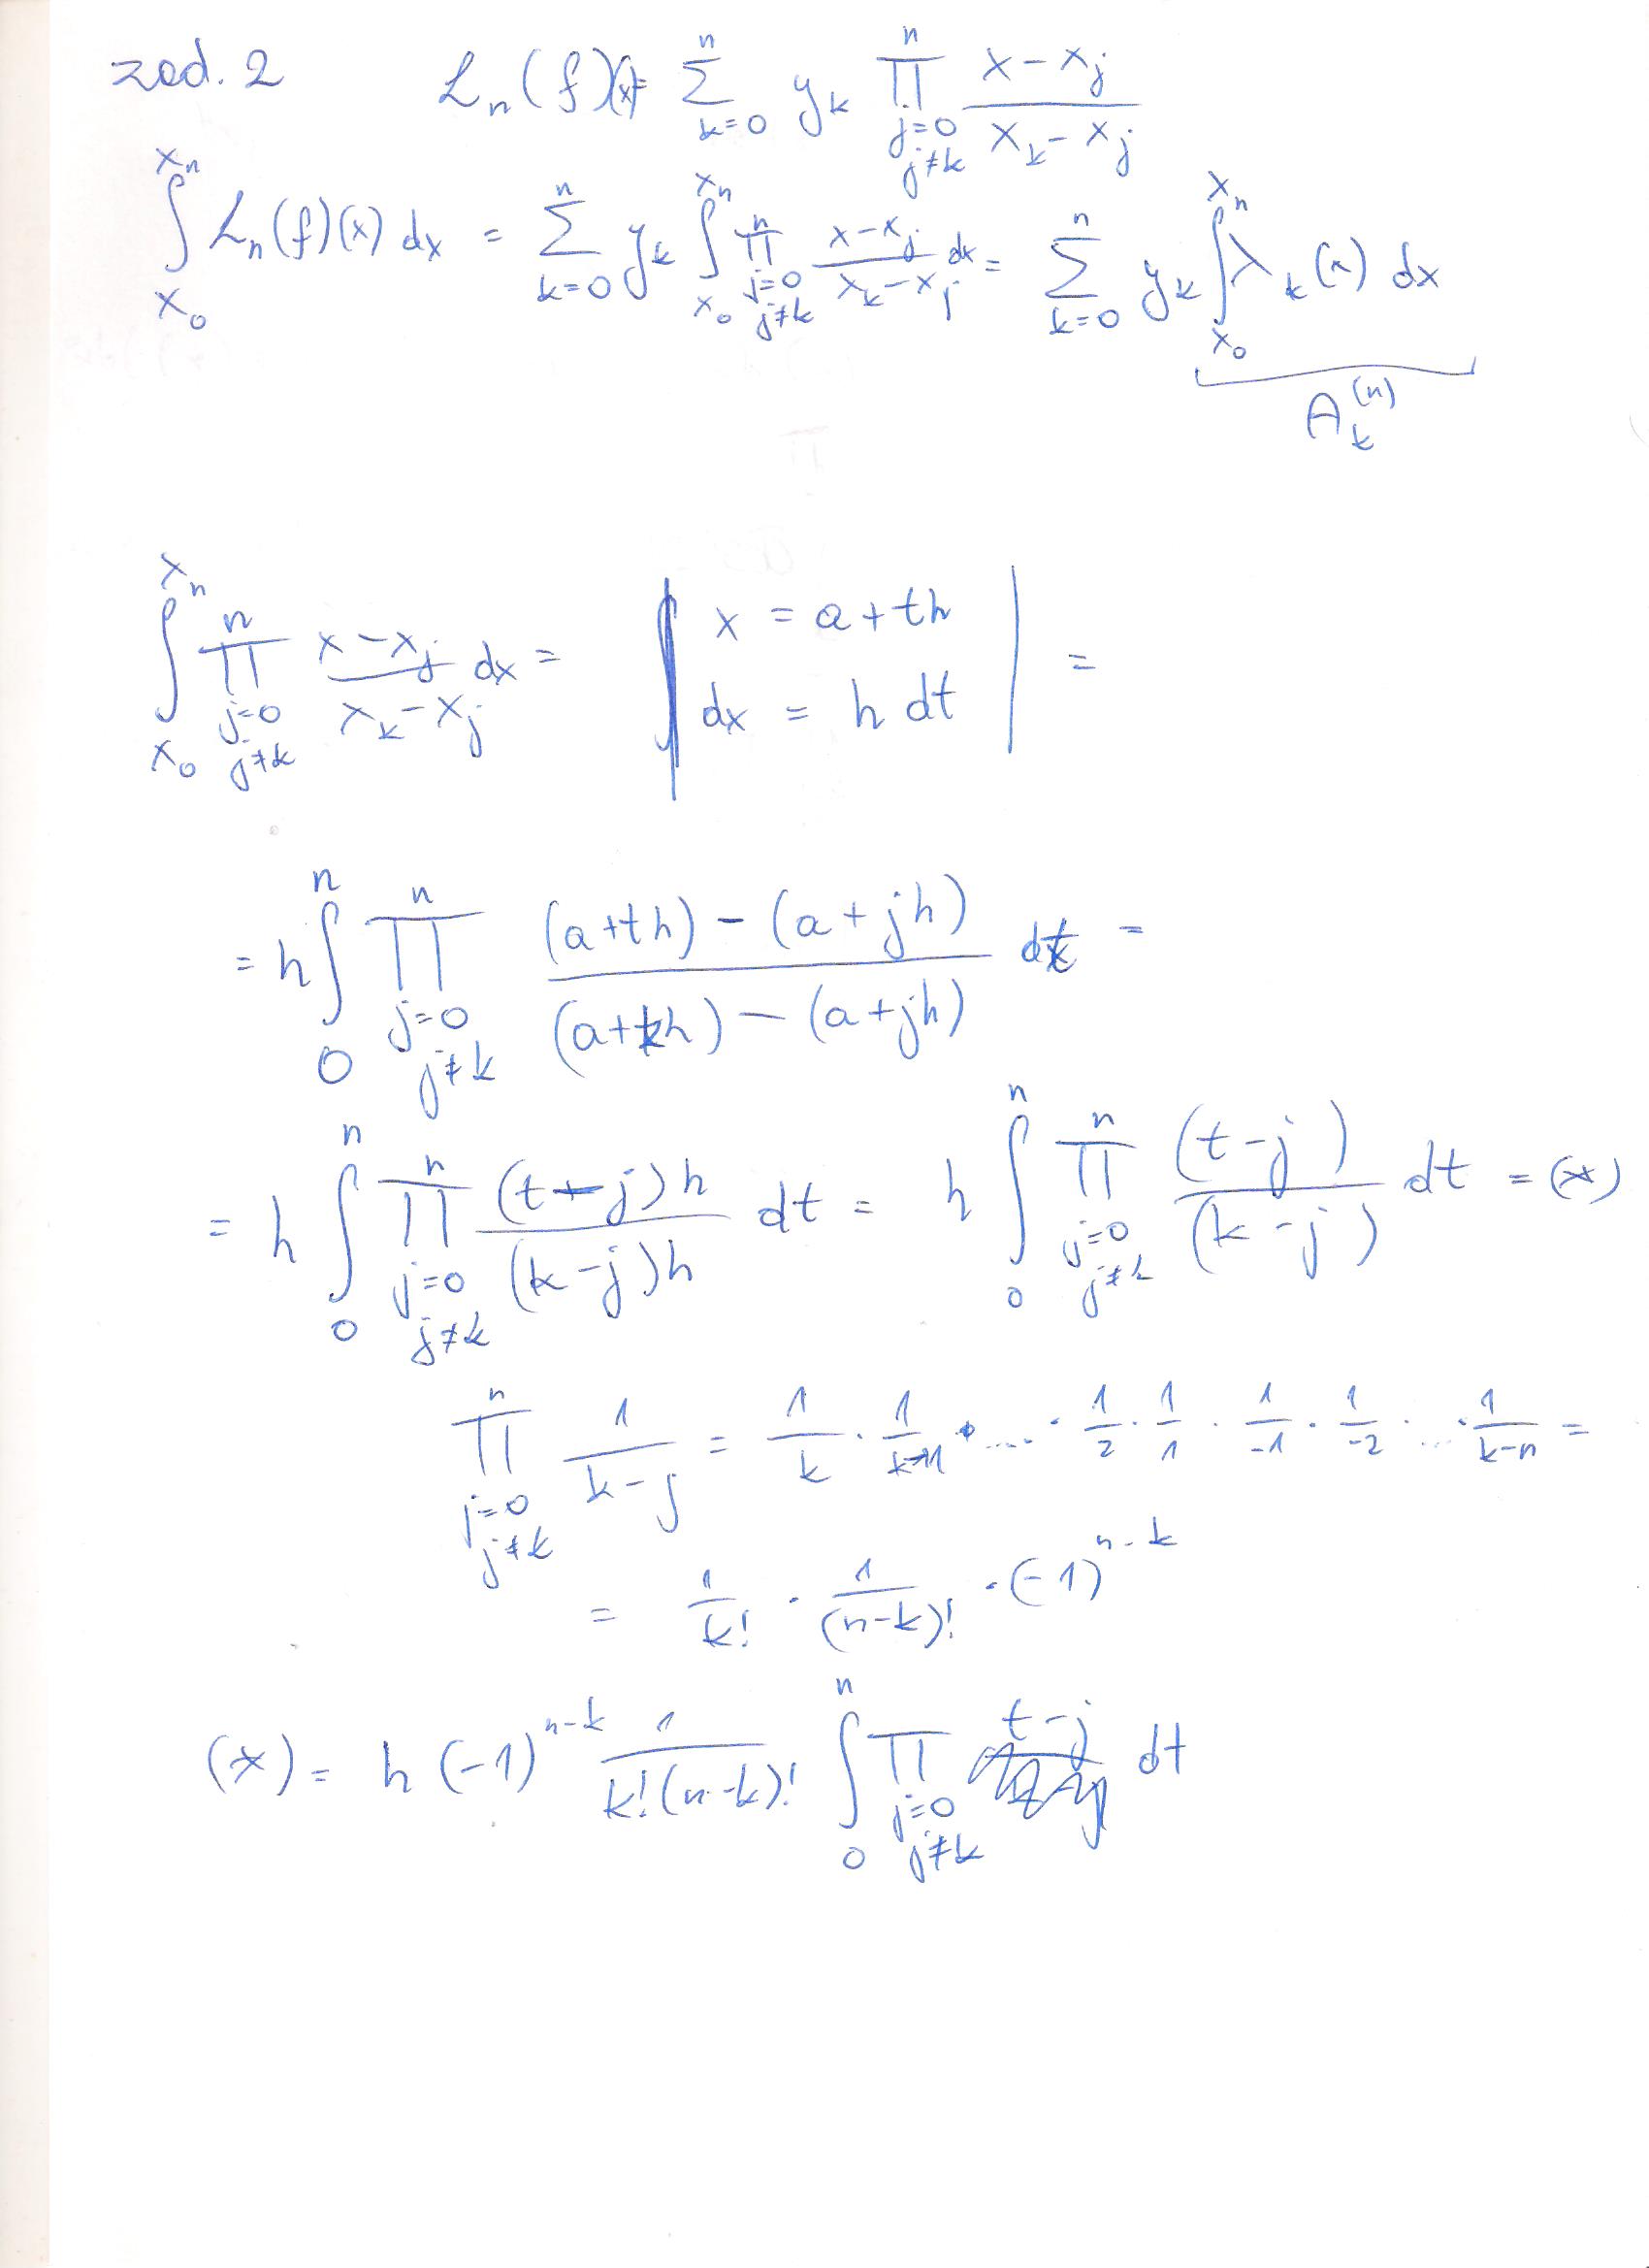 zad. 2 L_n(f)(x) = \sum_{k=0}^{n} y_k \prod_{j=0, j≠k}^{n} \frac{x-x_j}{x_k-x_j}
\int_{x_0}^{x_n} L_n(f)(x) dx = \sum_{k=0}^{n} y_k \int_{x_0}^{x_n} \prod_{j=0, j≠k}^{n} \frac{x-x_j}{x_k-x_j} dx = \sum_{k=0}^{n} y_k \int_{x_0}^{x_n} λ_k(x) dx
A_k^{(n)}
\int_{x_0}^{x_n} \prod_{j=0, j≠k}^{n} \frac{x-x_j}{x_k-x_j} dx = | x = a + th, dx = h dt | =
= h \int_{0}^{n} \prod_{j=0, j≠k}^{n} \frac{(a+th) - (a+jh)}{(a+kh) - (a+jh)} dt =
= h \int_{0}^{n} \prod_{j=0, j≠k}^{n} \frac{(t-j)h}{(k-j)h} dt = h \int_{0}^{n} \prod_{j=0, j≠k}^{n} \frac{(t-j)}{(k-j)} dt = (*)
\prod_{j=0, j≠k}^{n} \frac{1}{k-j} = \frac{1}{k} · \frac{1}{k-1} · ... · \frac{1}{2} · \frac{1}{1} · \frac{1}{-1} · \frac{1}{-2} · ... · \frac{1}{k-n} =
= \frac{1}{k!} · \frac{1}{(n-k)!} · (-1)^{n-k}
(*) = h (-1)^{n-k} \frac{1}{k!(n-k)!} \int_{0}^{n} \prod_{j=0, j≠k} t-j dt